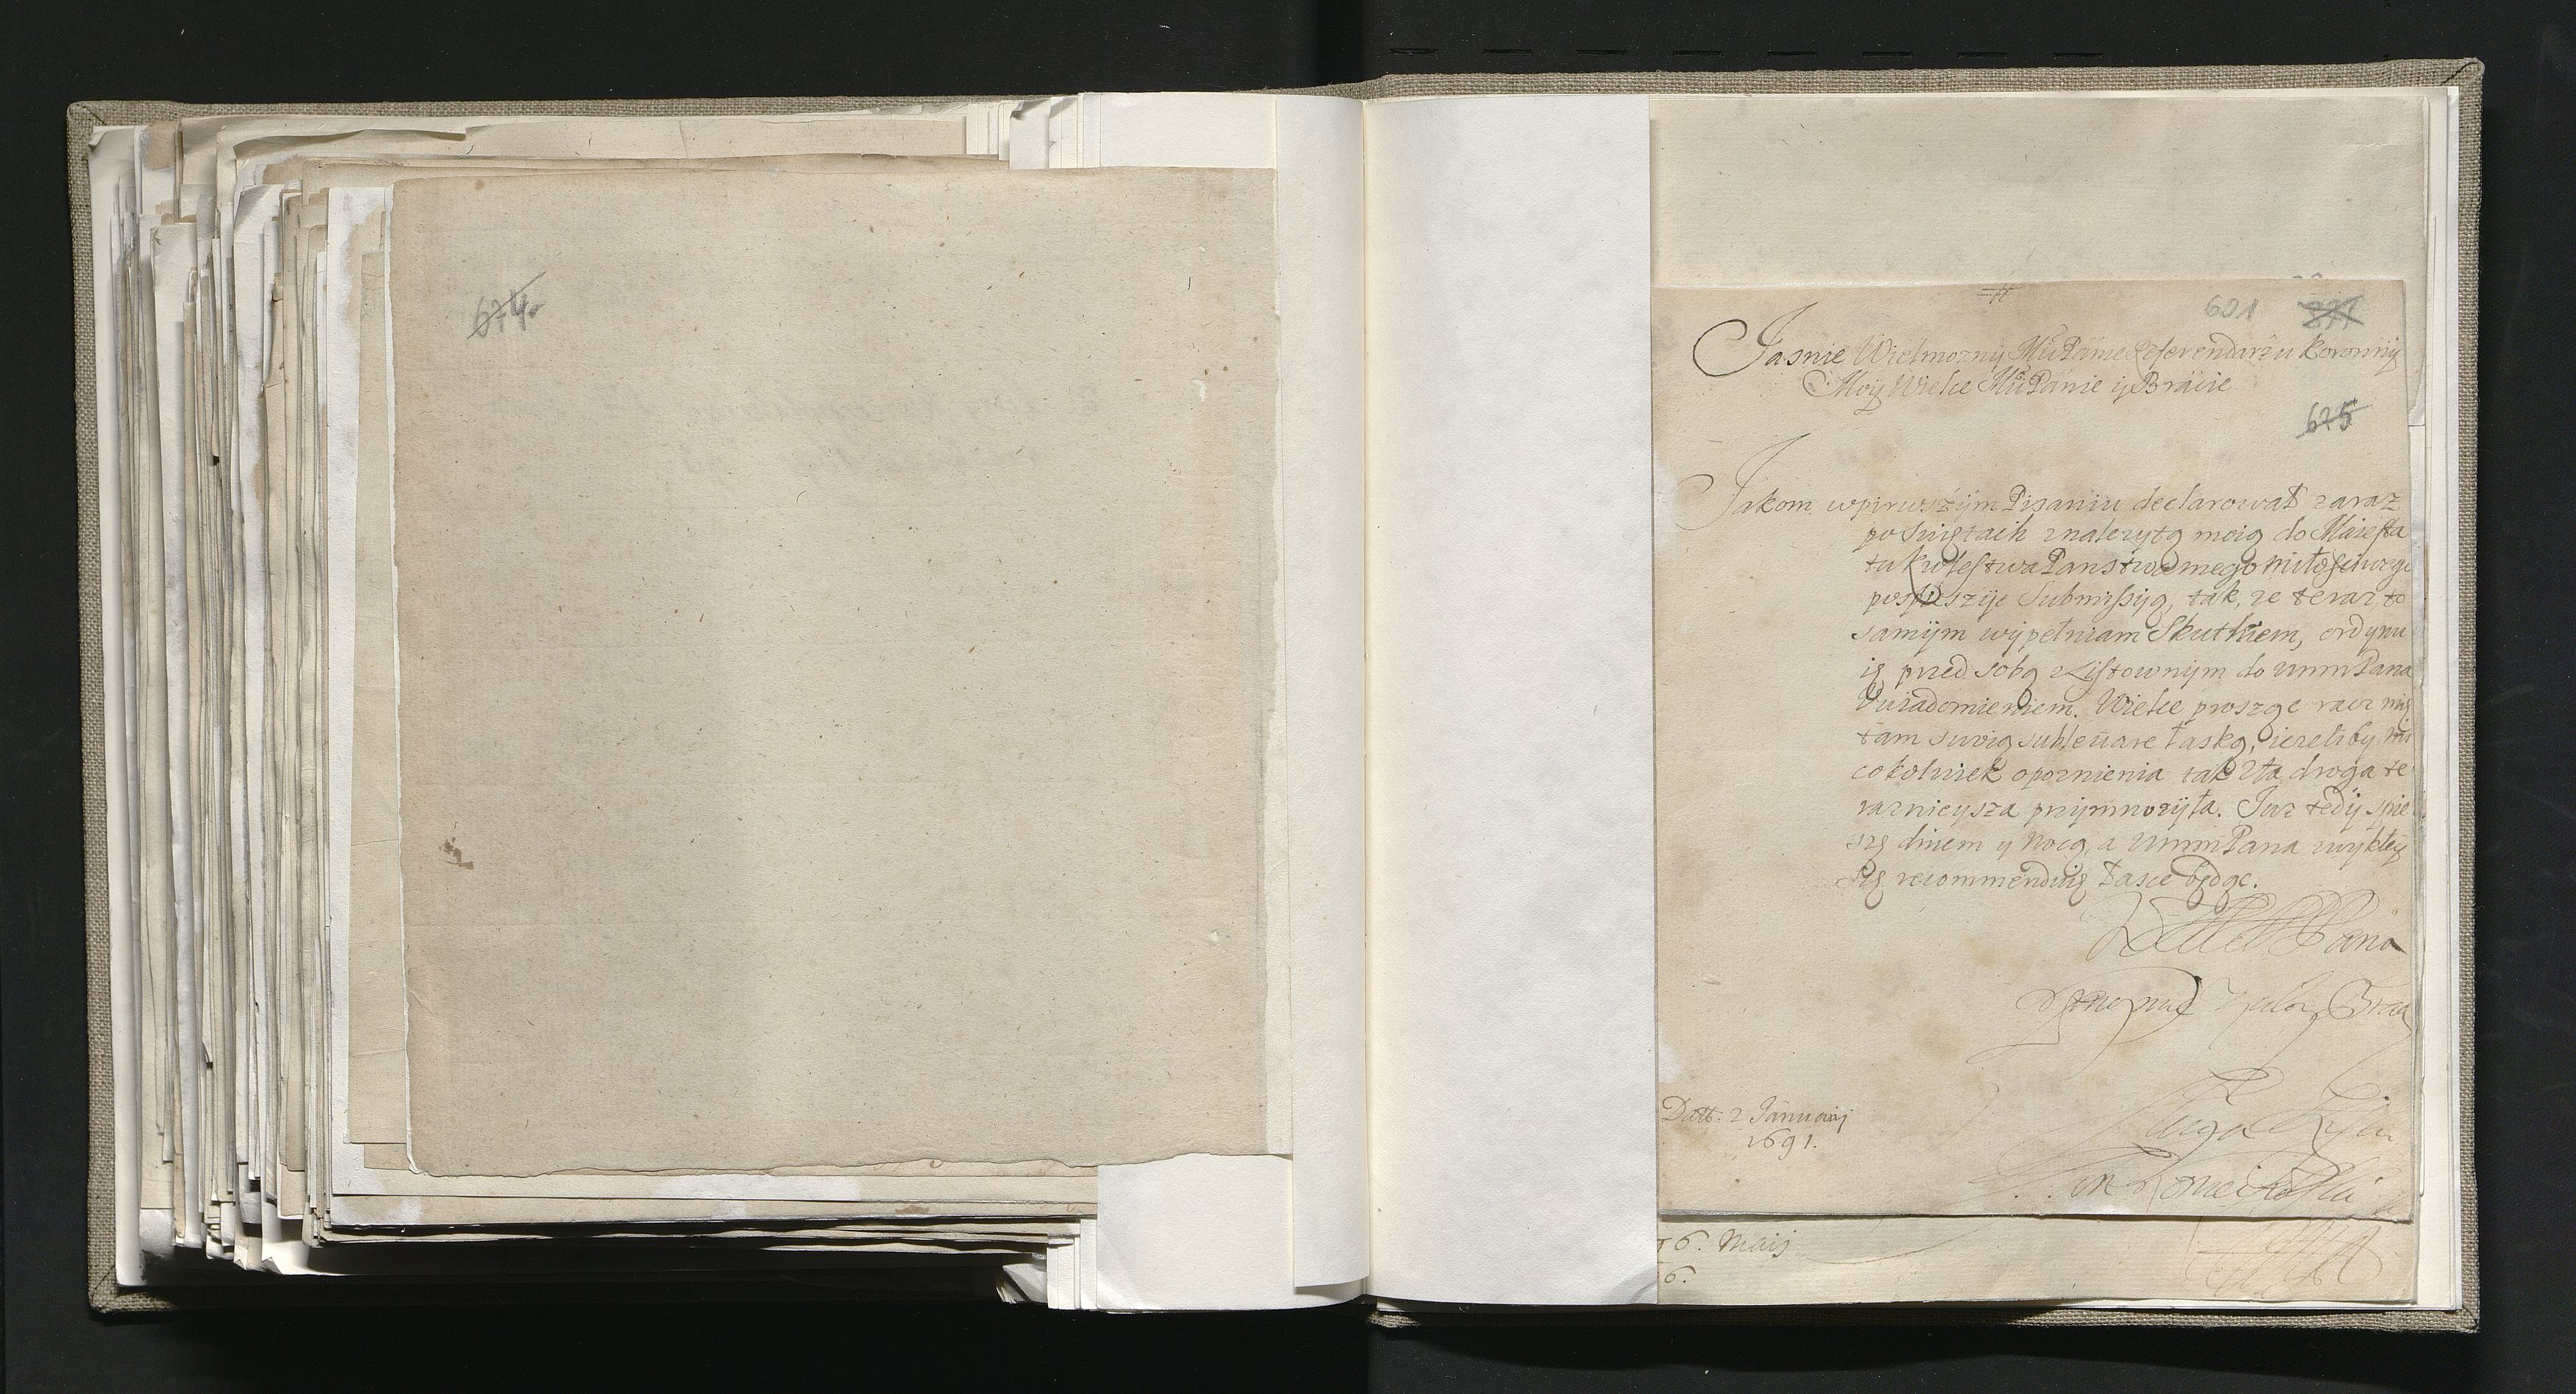 674.
601 871
Jasnie Wielmozny Mu Panie Referendarzu Koronny
Moy Wielce Mu Panie y Bracie
675
Jakom wpirwszym Pisaniu declarował zaraz
po Swiętach znalezytą moią do Maiesta
tu krolestwa Panstwa mego miłosciwego
pospieszyc Submissyą, tak, ze teraz to
samym wypełniam Skutkiem, ordynu
ię przed sobą z Listownym do WmmPana
Uwiadomieniem. Wielce proszęc racz mię
tam swoią subleuare łaską, iezeliby mi
cokolwiek opoznienia tak zła droga te
raznieysza przymnozyła. Juz tedy spie
szę dniem y nocą, a WmmPana zwykłey
Się recommenduię łasce będąc.
Pana
Brat
Sługa
Datt: 2 Januarij
1691.
Jan Koniecpolski
6. Maij
6.